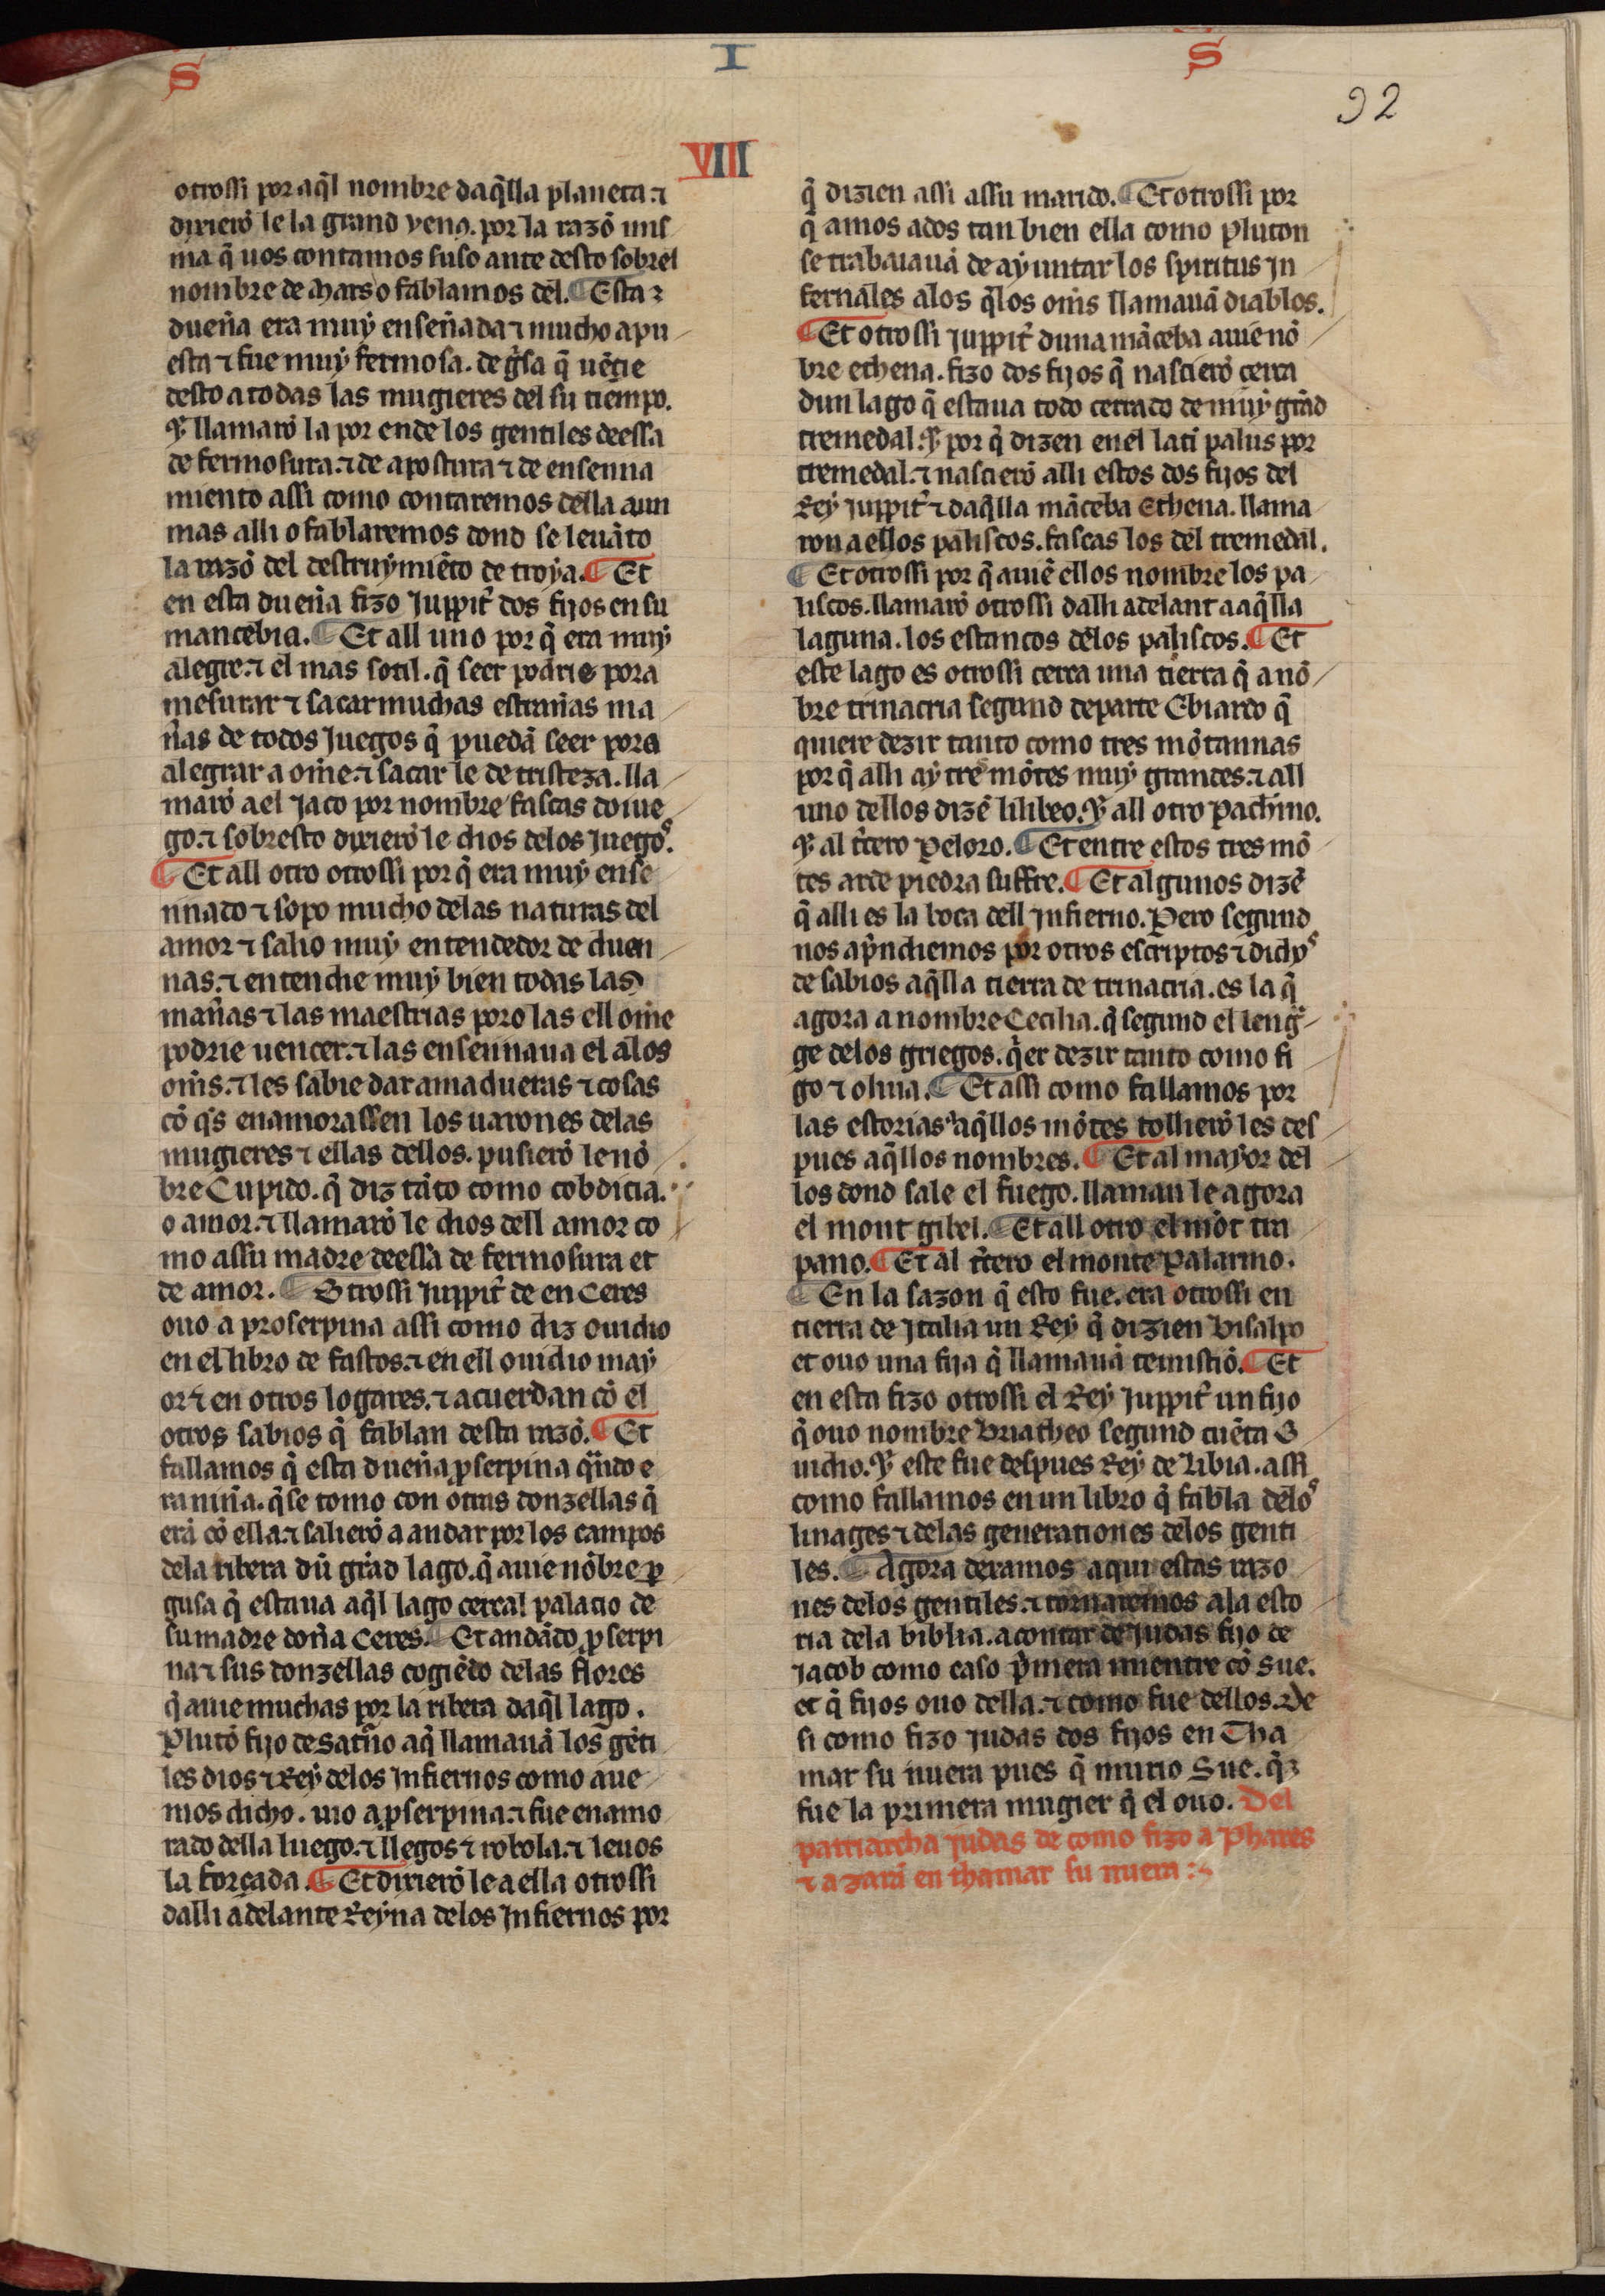 S I S
92
VIII
otrossi por aq̃l nombre daq̃lla planeta ⁊
dixierõ le la grand venꝰ. por la razõ mis
ma q̃ uos contamos suso ante desto sobrel
nombre de Mars o fablamos del. ¶ Esta
dueña era muẏ enseñada ⁊ mucho apu
esta ⁊ fue muẏ fermosa. de gͥsa q̃ uẽçie
desto a todas las mugieres del su tiempo.
⁊ llamarõ la por ende los gentiles deessa
de fermosura. ⁊ de apostura ⁊ de ensenna
miento assi como contaremos della aun
mas alli o fablaremos dond se leuãto
la razõ del destruẏmiẽto de troẏa. ¶ Et
en esta dueña fizo Juppit̃ dos fijos en su
mancebia. ¶ Et all uno por q̃ era muẏ
alegre. ⁊ el mas sotil. q̃ seer podrie pora
mesurar ⁊ sacar muchas estrañas ma
ñas de todos juegos q̃ puedã seer pora
alegrar a om̃e. ⁊ sacar le de tristeza. lla
marõ a el Jaco por nombre fascas do iue
go. ⁊ sobresto dixierõ le dios delos juegos.
¶ Et all otro otrossi por q̃ era muẏ ense
nnado ⁊ sopo mucho delas naturas del
amor ⁊ salio muẏ entendedor de duen
nas. ⁊ entendie muẏ bien todas las
mañas ⁊ las maestrias poro las ell om̃e
podrie uencer. ⁊ las ensennaua el alos
om̃s. ⁊ les sabie dar amadueras ⁊ cosas
cõ q̃s enamorassen los uarones delas
mugieres ⁊ ellas dellos. pusierõ le nõ
bre Cupido. q̃ diz tãto como cobdicia.
o amor. ⁊ llamarõ le dios dell amor co
mo assu madre deessa de fermosura et
de amor. ¶ Otrossi Juppit̃ de en Ceres
ouo a proserpina assi como diz ouidio
en el libro de fastos. ⁊ en ell ouidio maẏ
or ⁊ en otros logares. ⁊ acuerdan cõ el
otros sabios q̃ fablan desta razõ. ¶ Et
fallamos q̃ esta dueña ꝓserpina qͣndo e
ra niña. q̃ se tomo con otras donzellas q̃
erã cõ ella. ⁊ salierõ a andar por los campos
dela ribera dũ grãd lago. q̃ auie nõbre ꝑ
gusa q̃ estaua aq̃l lago cercal palacio de
su madre doña Ceres. ¶ Et andãdo ꝓserpi
na ⁊ sus donzellas cogiẽdo delas flores
q̃ auie muchas por la ribera daq̃l lago.
Plutõ fijo de Satñno aq̃ llamauã los gẽti
les dios ⁊ Reẏ delos Infiernos como aue
mos dicho. uio a ꝓserpina. ⁊ fue enamo
rado della luego. ⁊ llegos ⁊ robola. ⁊ leuos
la forçada. ¶ Et dixierõ le a ella otrossi
dalli adelante Reẏna delos Infiernos por
q̃ dizien assi assu marido. ¶ Et otrossi por
q̃ amos ados tan bien ella como pluton
se trabaiauã de aẏuntar los spiritus In
fernales alos q̃ los om̃s llamauã diablos.
¶ Et otrossi Juppit̃ duna mãceba auiẽ nõ
bre ethena. fizo dos fijos q̃ nascierõ cerca
dun lago q̃ estaua todo cerrado de muẏ grãd
tremedal. ⁊ por q̃ dizen en el lati palus por
tremedal. ⁊ nascierõ alli estos dos fijos del
Reẏ Juppit̃ ⁊ daq̃lla mãceba Ethena. llama
ron a ellos paliscos. fascas los del tremedal.
¶ Et otrossi por q̃ auiẽ ellos nombre los pa
liscos. llamarõ otrossi dalli adelant a aq̃lla
laguna. los estancos delos paliscos. ¶ Et
este lago es otrossi cerca una tierra q̃ a nõ
bre trinacria segund departe Ebiardo q̃
quiere dezir tanto como tres mõtannas
por q̃ alli aẏ tres mõtes muẏ grandes. ⁊ all
uno dellos dizẽ lilibeo. ⁊ all otro Pachino.
⁊ al t̃cero Peloro. ¶ Et entre estos tres mõ
tes arde piedra suffre. ¶ Et algunos dizẽ
q̃ alli es la boca dell Infierno. Pero segund
nos ap̃ndiemos por otros escriptos ⁊ dichos
de sabios aq̃lla tierra de trinacria. es la q̃
agora a nombre Cecilia. q̃ segund el lengͣ
ge delos griegos. q̃er dezir tanto como fi
go ⁊ oliua. ¶ Et assi como fallamos por
las estorias aq̃llos mõtes tollierõ les des
pues aq̃llos nombres. ¶ Et al maẏor del
los dond sale el fuego. llaman le agora
el mont gibel. ¶ Et all otro el mõt tra
pano. ¶ Et al t̃cero el monte Palarmo.
¶ En la sazon q̃ esto fue. era otrossi en
tierra de Italia un Rey q̃ dizien Bisalpo
et ouo una fija q̃ llamauã temistiõ. ¶ Et
en esta fizo otrossi el Reẏ Juppit̃ un fijo
q̃ ouo nombre Briatheo segund cuẽta O
uidio. ⁊ este fue despues Reẏ de Libia. assi
como fallamos en un libro q̃ fabla delos
linages ⁊ delas generationes delos genti
les. ¶ Agora dexamos aqui estas razo
nes delos gentiles. ⁊ tornaremos ala esto
ria dela biblia. a contar de Judas fijo de
Jacob como caso p̃mera mientre cõ Sue.
et q̃ fijos ouo della. ⁊ como fue dellos. De
si como fizo Judas dos fijos en Tha
mar su nuera pues q̃ murio Sue. q̃
fue la primera mugier q̃ el ouo. Del
patriarcha Judas de como fizo a Phares
⁊ a zarã en thamar su nuera :